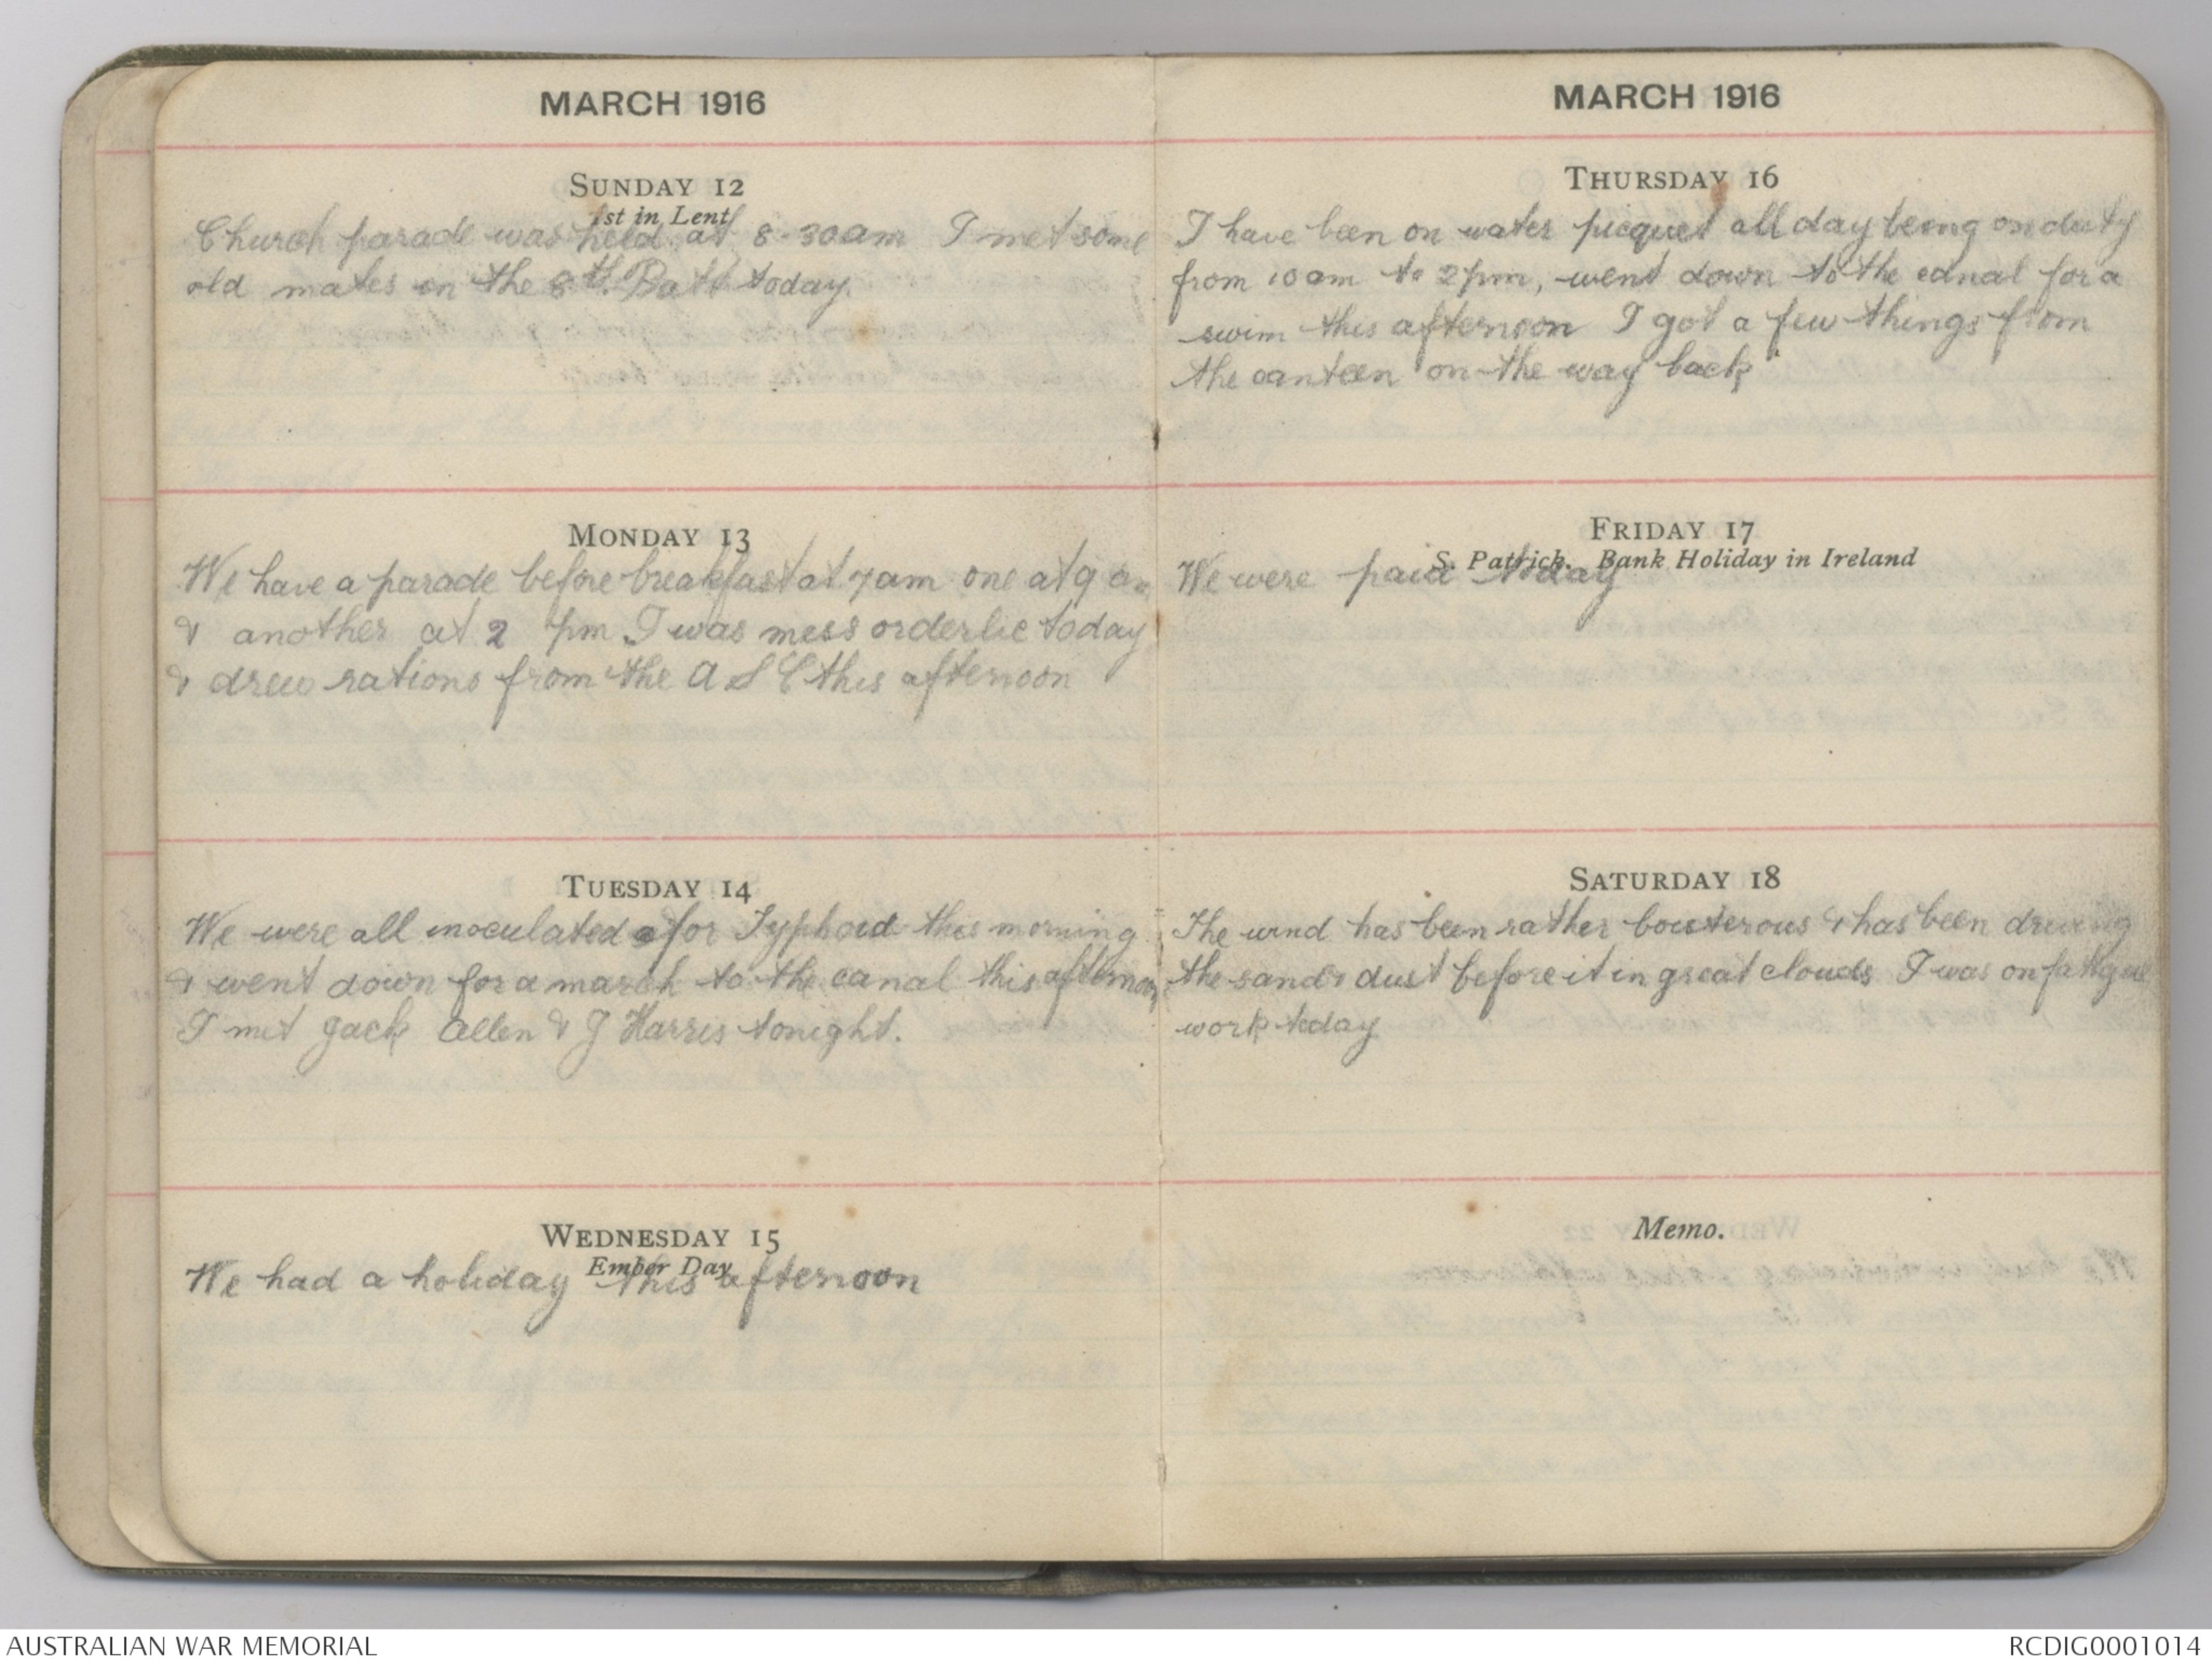 MARCH 1916
SUNDAY 12
1st in Lent
Church parade was held at 8-30am I met some
old mates in the 8th. Batt today.
MONDAY 13
We have a parade before breakfast at 7am one at 9 am
& another at 2 pm I was mess orderlie today
& drew rations from the A S C this afternoon
TUESDAY 14
We were all inoculated for Typhoid this morning
& went down for a march to the canal this afternoon
I met Jack Allen & J Harris tonight.
WEDNESDAY 15
Ember Day
We had a holiday this afternoon
MARCH 1916
THURSDAY 16
I have been on water picquet all day being on duty
from 10am to 2pm, went down to the canal for a
swim this afternoon I got a few things from
the canteen on the way back
FRIDAY 17
S. Patrick. Bank Holiday in Ireland
We were paid today
SATURDAY 18
The wind has been rather boisterous & has been driving
the sand & dust before it in great clouds I was on fatigue
work today
Memo.
AUSTRALIAN WAR MEMORIAL
RCDIG0001014